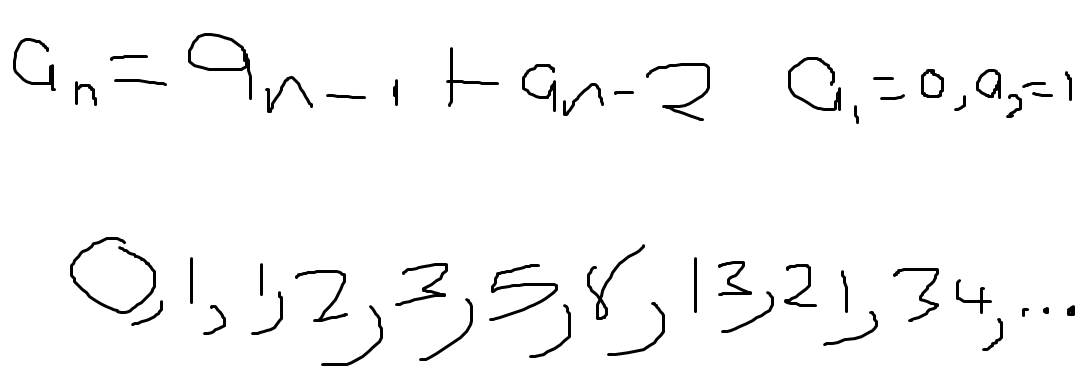 aₙ = aₙ₋₁ + aₙ₋₂ a₁ = 0, a₂ = 1
0, 1, 1, 2, 3, 5, 8, 13, 21, 34, ...